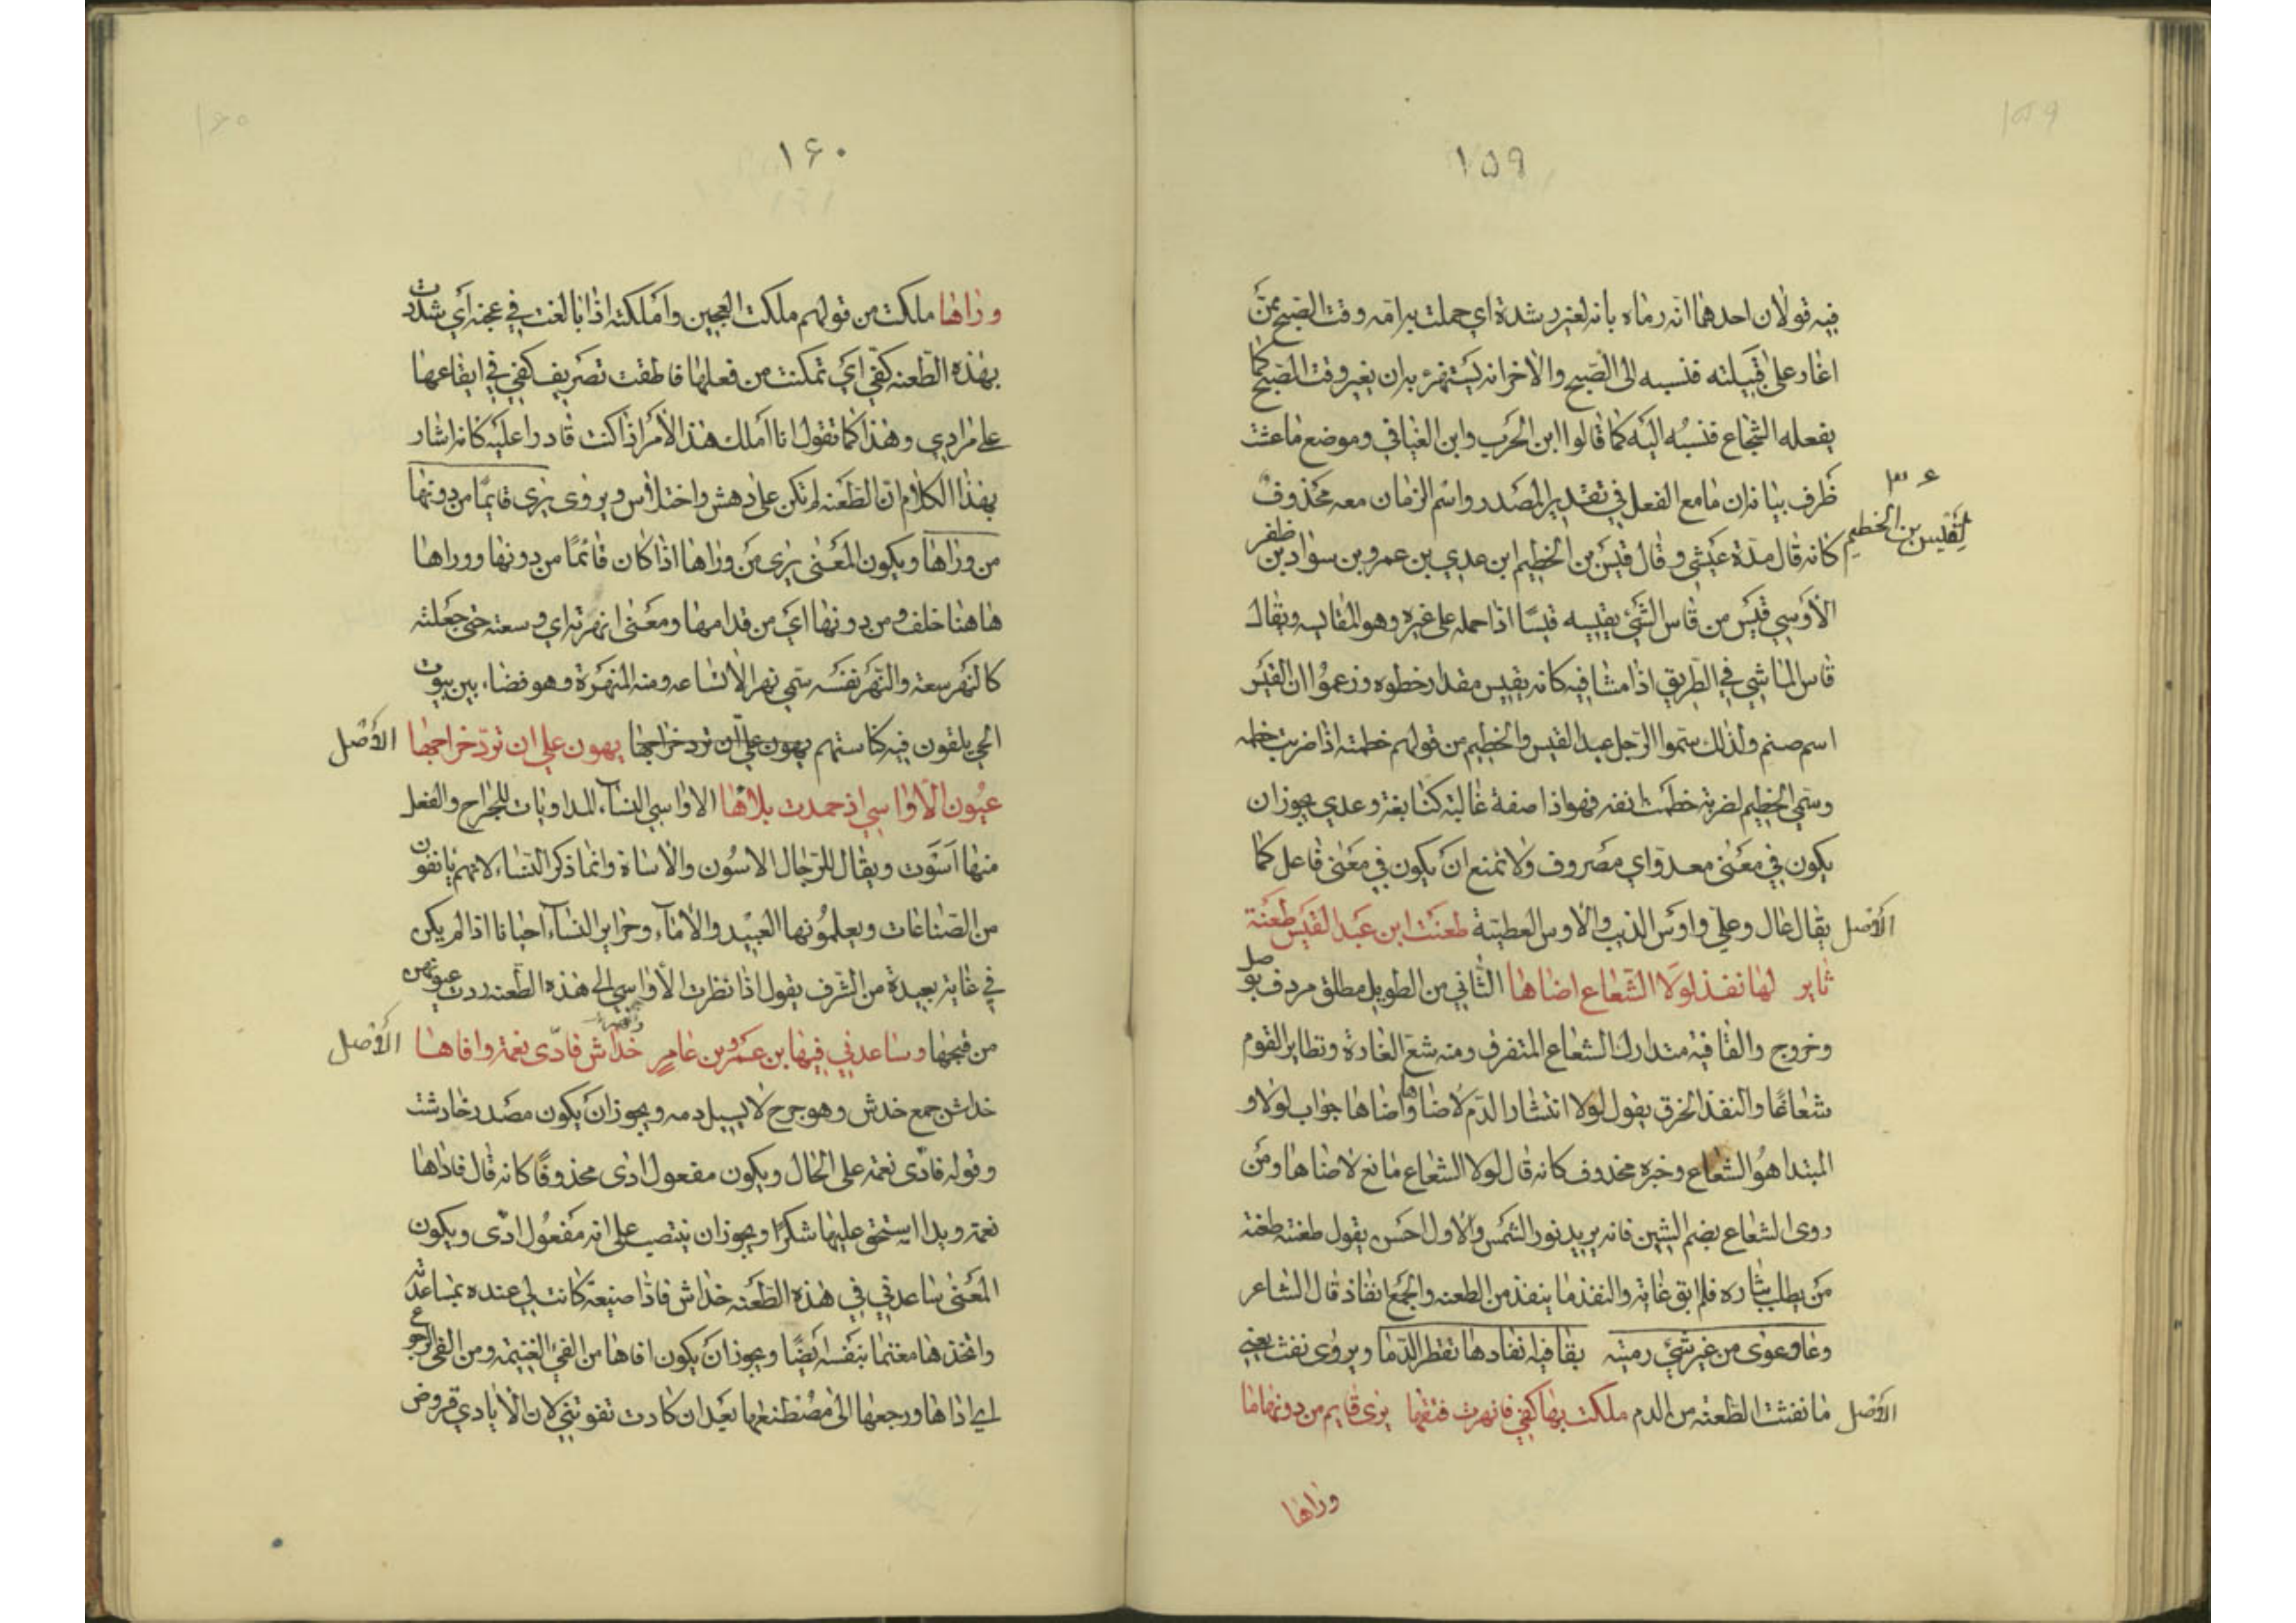 ١٥٩
فيه قولان احدهما انه رماه بانه لغير رشدة اي حملت به امه وقت الصبح ممن
اغار على قبيلته فنسبه الى الصبح والاخر انه يستهزء به ان يغير وقت الصبح كما
يفعله الشجاع فنسبه اليه كما قالوا ابن الحرب وابن الفيافي وموضع ما عشت
ظرف بيانه ان ما مع الفعل في تقدير المصدر واسم الزمان معه محذوف
٣٤
لقيس بن الخطيم
كانه قال مدة عيشي وقال قيس بن الخطيم ابن عدي بن عمرو بن سواد بن ظفر
الاوسي قيس من قاس الشيء يقيسه قيسا اذا حمله على غيره وهو المقايسه ويقال
قاس الماشي في الطريق اذا مشا فيه كانه يقيس مقدار خطوه وزعموا ان القيس
اسم صنم ولذلك سموا الرجل عبد القيس والخطيم من قولهم خطمته اذا ضربت خطمه
وسمي الخطيم لضربة خطمت انفه فهو اذا صفة غالبة كنابغة وعدي يجوز ان
يكون في معنى معدو اي مصروف ولا تمنع ان يكون في معنى فاعل كما
الأصل
يقال عال وعلي واوس الذيب والاوس العطية طعنت ابن عبد القيس طعنة
ثاير لها نفذ لولا الشعاع اضاها الثاني من الطويل مطلق مردف بوصل
وخروج والقافية متدارك الشعاع المتفرق ومنه شع الغارة وتطاير القوم
شعاعا والنفذ الخرق يقول لولا انتشار الدم لاضاها واضاها جواب لولا و
المبتدا هو الشعاع وخبره محذوف كانه قال لولا الشعاع مانع لاضاها ومن
روى الشعاع بضم الشين فانه يريد نور الشمس والاول احسن يقول طعنته طعنة
من يطلب بثاره فلم ابق غاية والنفذ ما ينفذ من الطعنه والجمع انفاذ قال الشاعر
وعاو عوى من غير شيء رميته بقافية انفاذها تقطر الدما ويروى نفث يعني
الأصل
ما نفثت الطعنه من الدم ملكت بها كفي فانهرت فتقها يرى قايم من دونها ما
وراها
١٦٠
وراها ملكت من قولهم ملكت العجين واملكته اذا بالغت في عجنه اي شددت
بهذه الطعنه كفي اي تمكنت من فعلها فاطقت تصريف كفي في ايقاعها
على مرادي وهذا كما تقول انا املك هذا الامر اذا كنت قادرا عليه كانه اشار
بهذا الكلام ان الطعنه لم تكن على دهش واختلاس ويروى يرى قايما من دونها
من وراها ويكون المعنى يرى من وراها اذا كان قائما من دونها ووراها
هاهنا خلف ومن دونها اي من قدامها ومعنى انهرته اي وسعته حتى جعلته
كالنهر سعة والنهر نفسه سمي نهرا لاتساعه ومنه المنهرة وهو فضاء بين بيوت
الحي يلقون فيه كناستهم يهون علي ان ترد خراجها يهون علي ان ترد خراجها
الأصل
عيون الاواسي اذ حمدت بلاها الاواسي النساء المداويات للجراح والفعل
منها اسوت ويقال للرجال الاسون والاساة وانما ذكر النساء لانهم يانفون
من الصناعات ويعلمونها العبيد والاماء وحراير النساء احيانا اذا لم يكن
في غاية بعيدة من الشرف يقول اذا نظرت الاواسي الى هذه الطعنه ردت عيونهن
من قبحها وساعدني فيها بن عمرو بن عامر خداش فادى نعمة وافاها
الأصل
خداش جمع خدش وهو جرح لا يسيل دمه ويجوز ان يكون مصدر خادشت
وقوله فادى نعمة على الحال ويكون مفعول ادى محذوفا كانه قال فاداها
نعمة ويدا استحق عليها شكرا ويجوز ان ينتصب على انه مفعول ادى ويكون
المعنى ساعدني في هذه الطعنه خداش فادا صنيعة كانت لي عنده بمساعدته
واتخذها مغنما بنفسه ايضا ويجوز ان يكون افاها من الفيء الغنيمه ومن الفيء الرجوع
اي اداها ورجعها الى مصطنعها بعد ان كادت تفوتني لان الايادي قروض